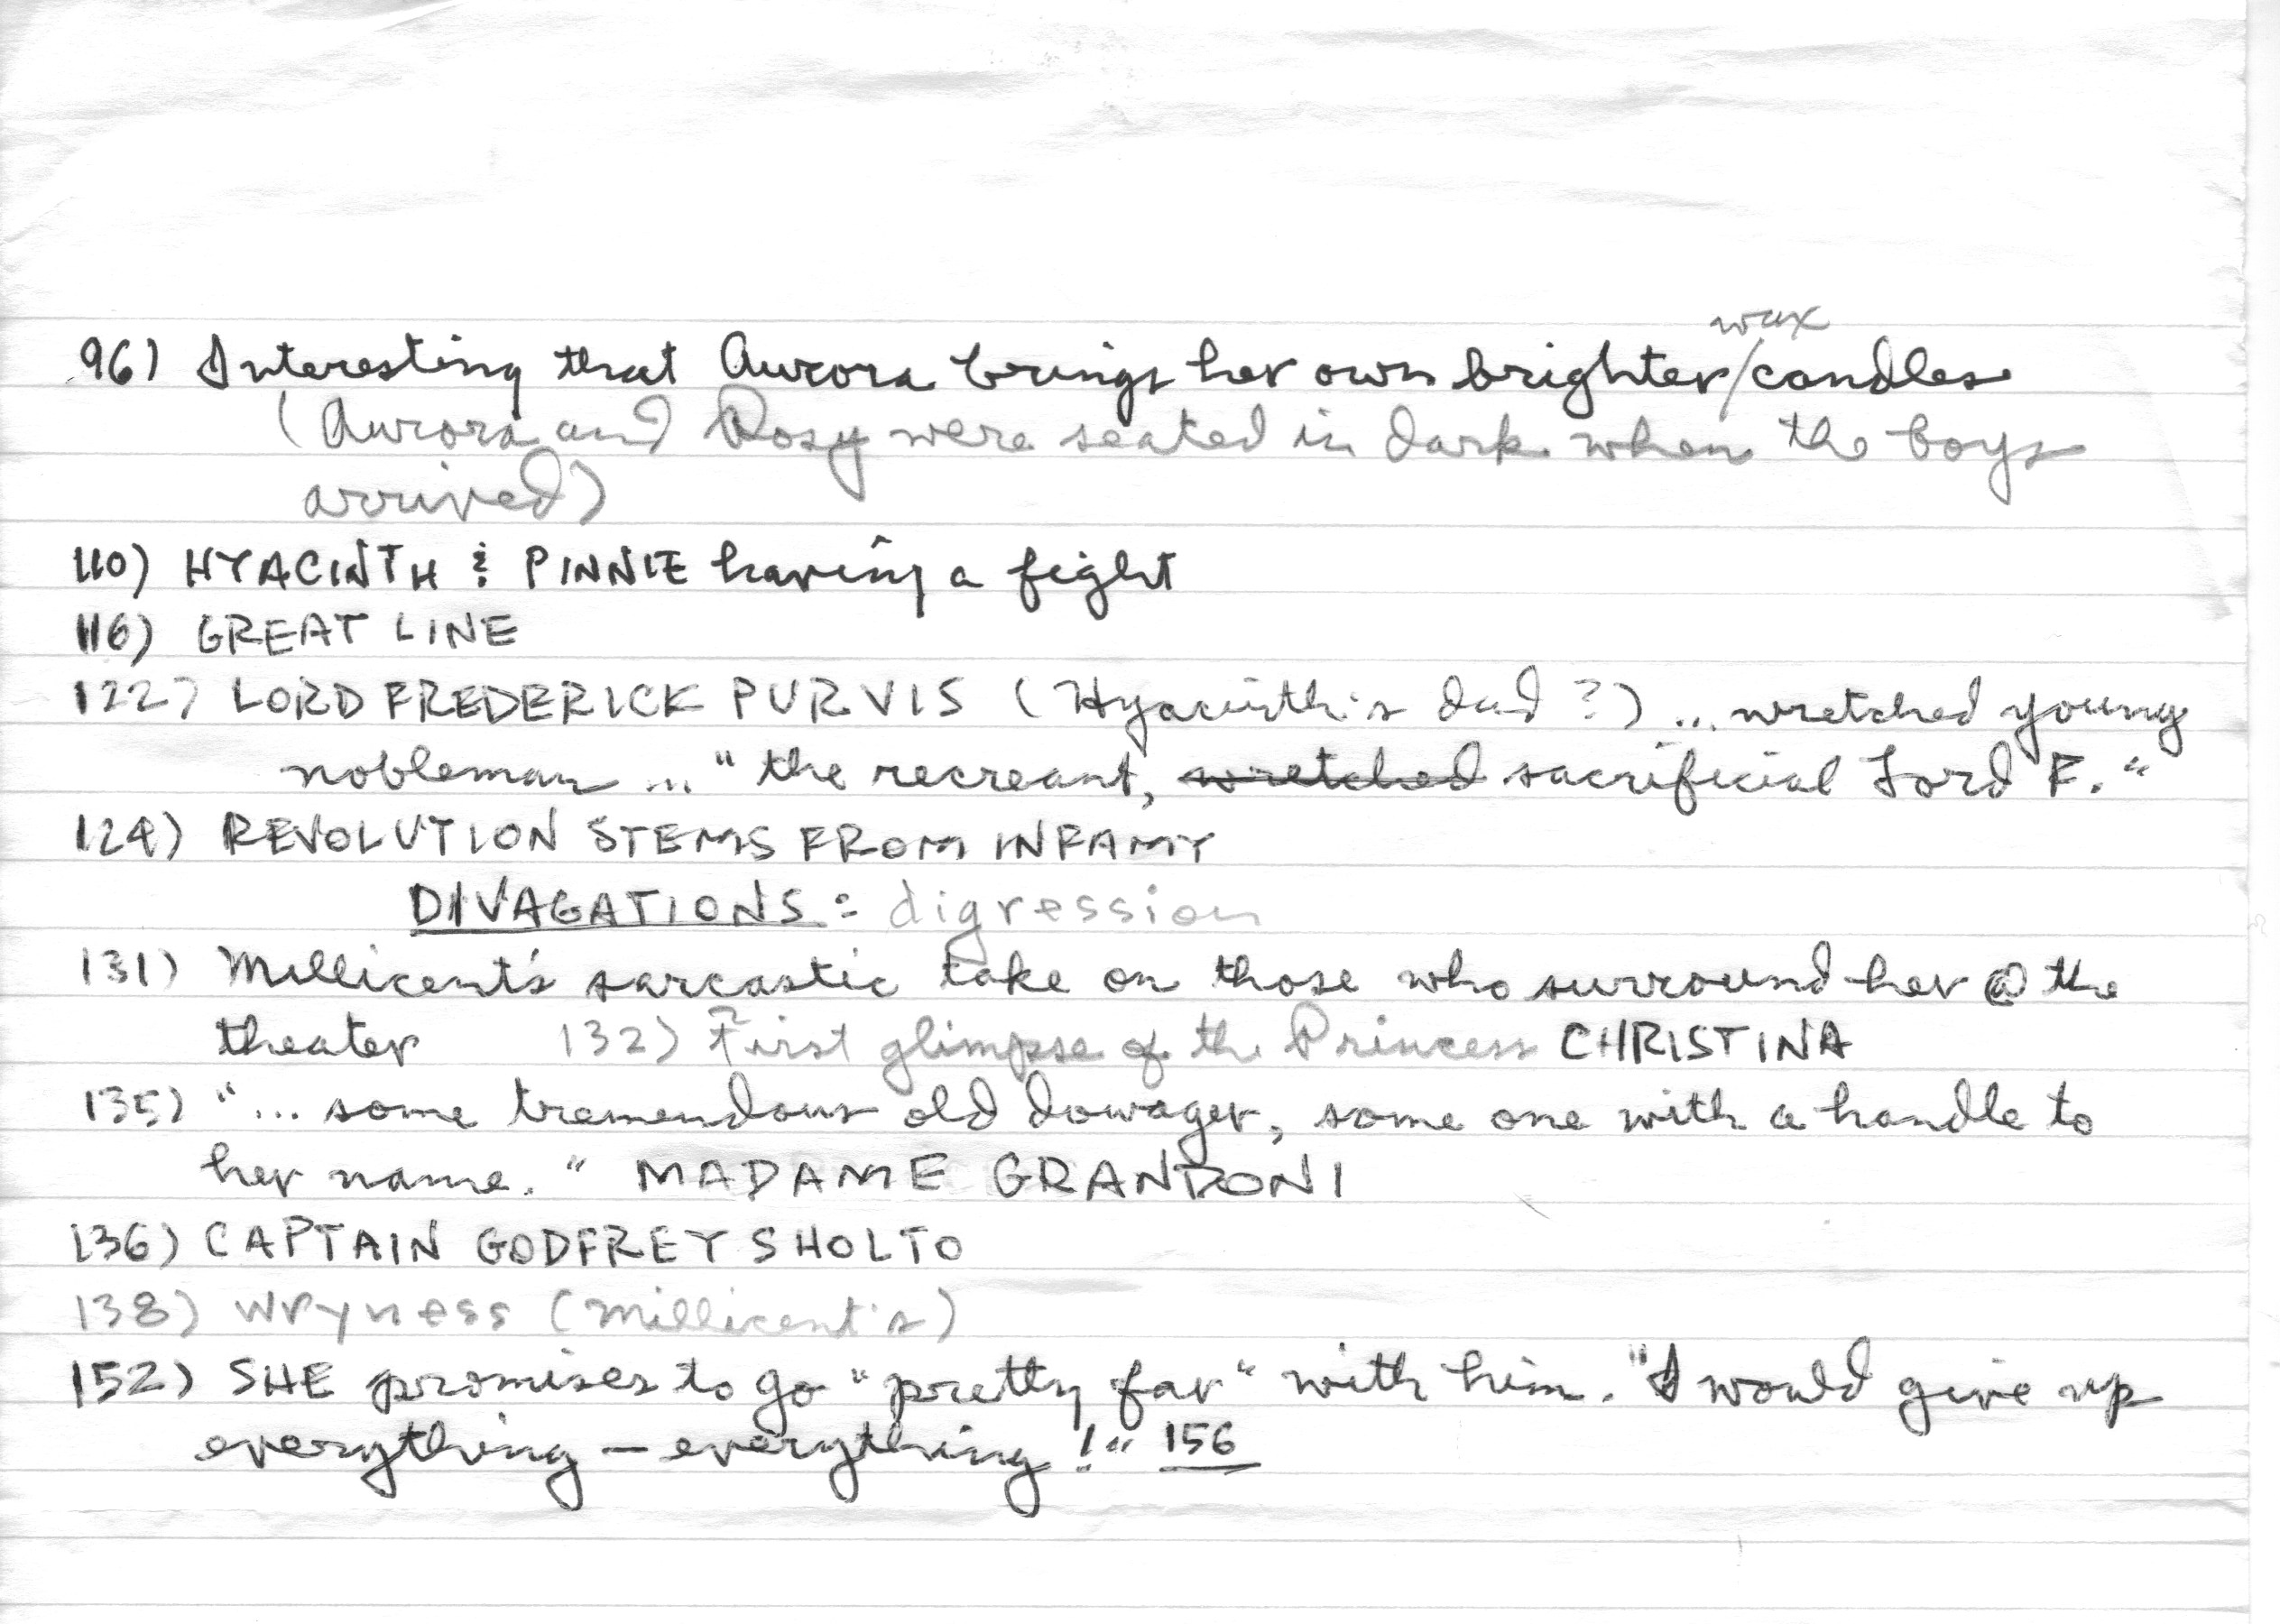 96) Interesting that Aurora brings her own brighter/wax candles
(Aurora and Rosy were seated in dark when the boys
arrived)
110) HYACINTH & PINNIE having a fight
116) GREAT LINE
122) LORD FREDERICK PURVIS (Hyacinth's dad?) ... wretched young
nobleman ... "the recreant, wretched sacrificial Lord F."
124) REVOLUTION STEMS FROM INFAMY
DIVAGATIONS = digression
131) Millicent's sarcastic take on those who surround her @ the
theater 132) First glimpse of the Princess CHRISTINA
135) "... some tremendous old dowager, some one with a handle to
her name." MADAME GRANDONI
136) CAPTAIN GODFREY SHOLTO
138) Wryness (Millicent's)
152) SHE promises to go "pretty far" with him. "I would give up
everything — everything!" 156